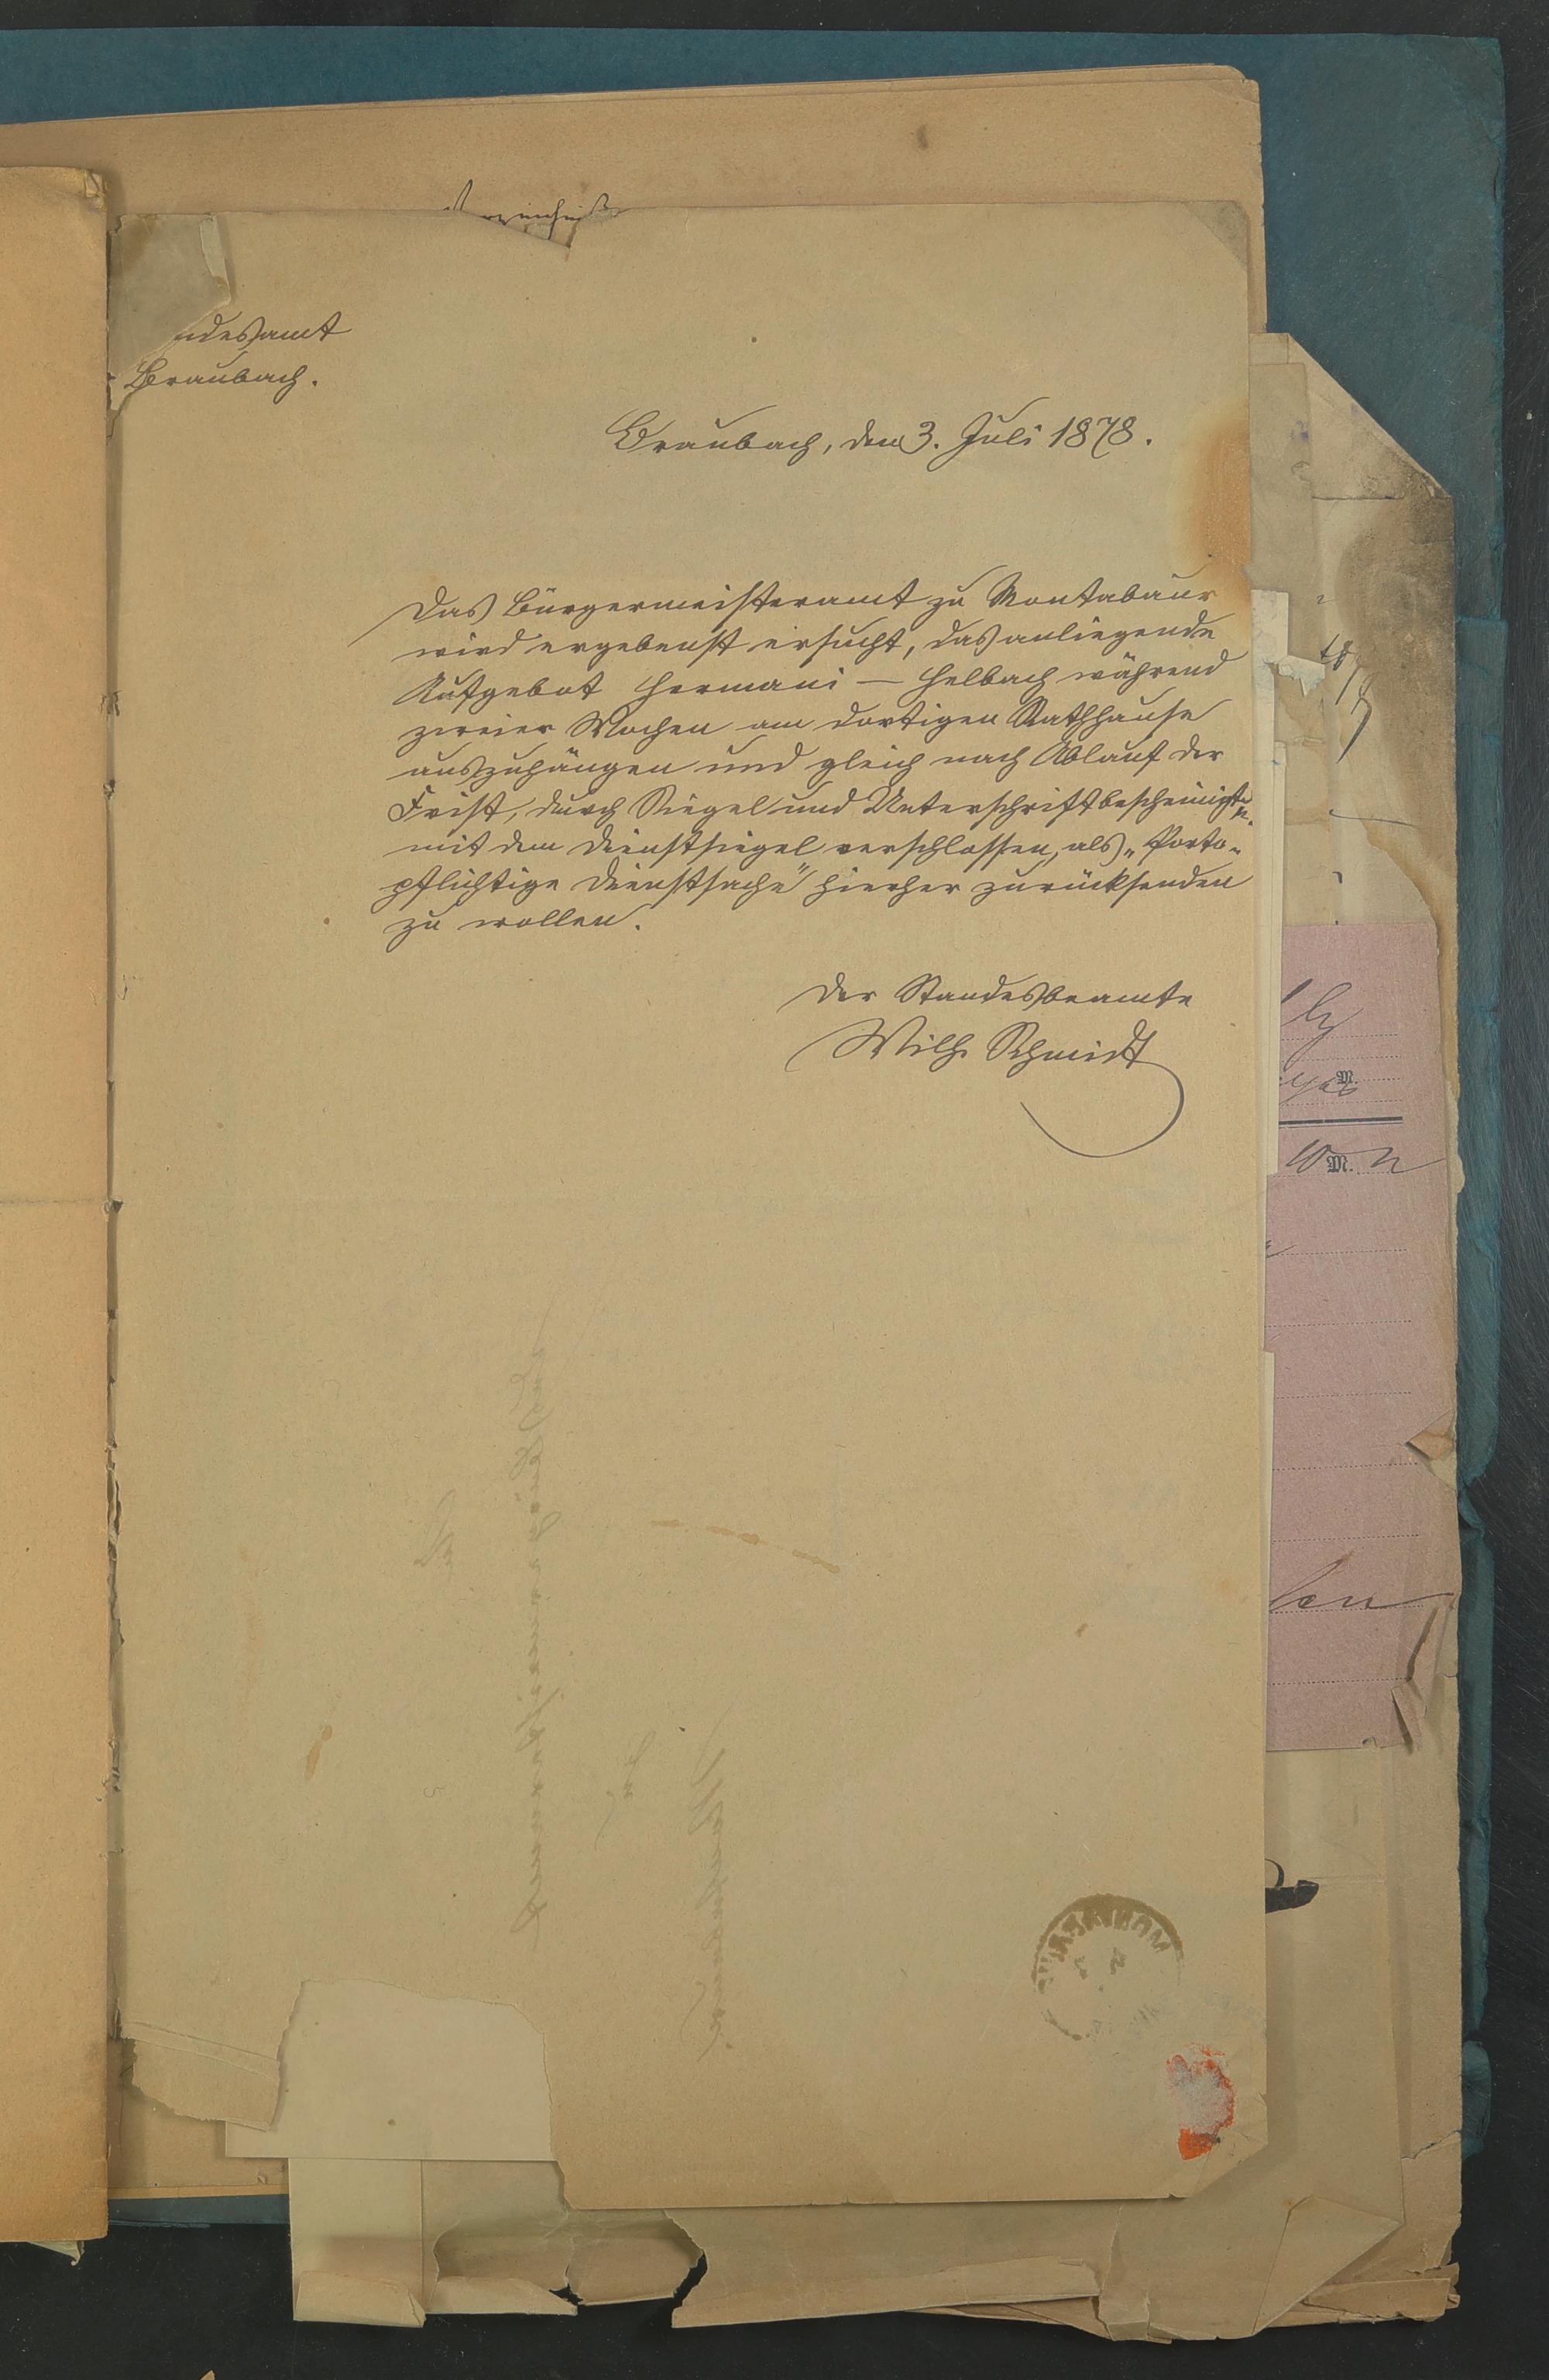 ndesamt
Braubach.
Braubach, den 3. Juli 1878.
Das Bürgermeisteramt zu Montabaur
wird ergebenst ersucht, das anliegende
Aufgebot Hermani — Helbach während
zweier Wochen am dortigen Rathhause
auszuhängen und gleich nach Ablauf der
Frist, durch Siegel und Unterschrift bescheinigt u.
mit dem Dienstsiegel verschlossen, als „Porto-
pflichtige Dienstsache" hierher zurücksenden
zu wollen.
Der Standesbeamte
Wilh. Schmidt
M.
M.